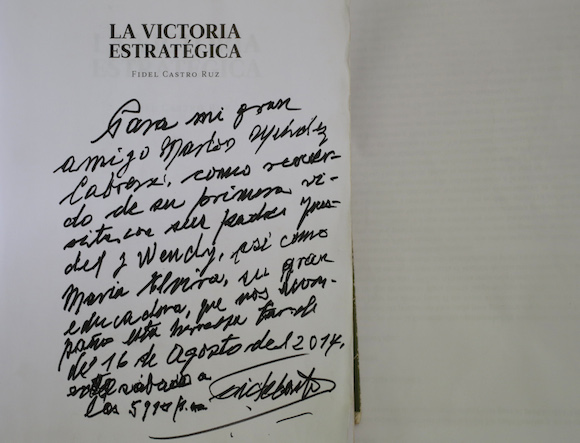 LA VICTORIA
ESTRATÉGICA
FIDEL CASTRO RUZ
Para mi gran
amigo Marlon Méndez
Cabrera, como recuer-
do de su primera vi-
sita, con sus padres
del y Wendy, así como
María Elvira, su gran
educadora, que nos acom-
paño esta hermosa tarde
del 16 de Agosto del 2014,
sábado a
las